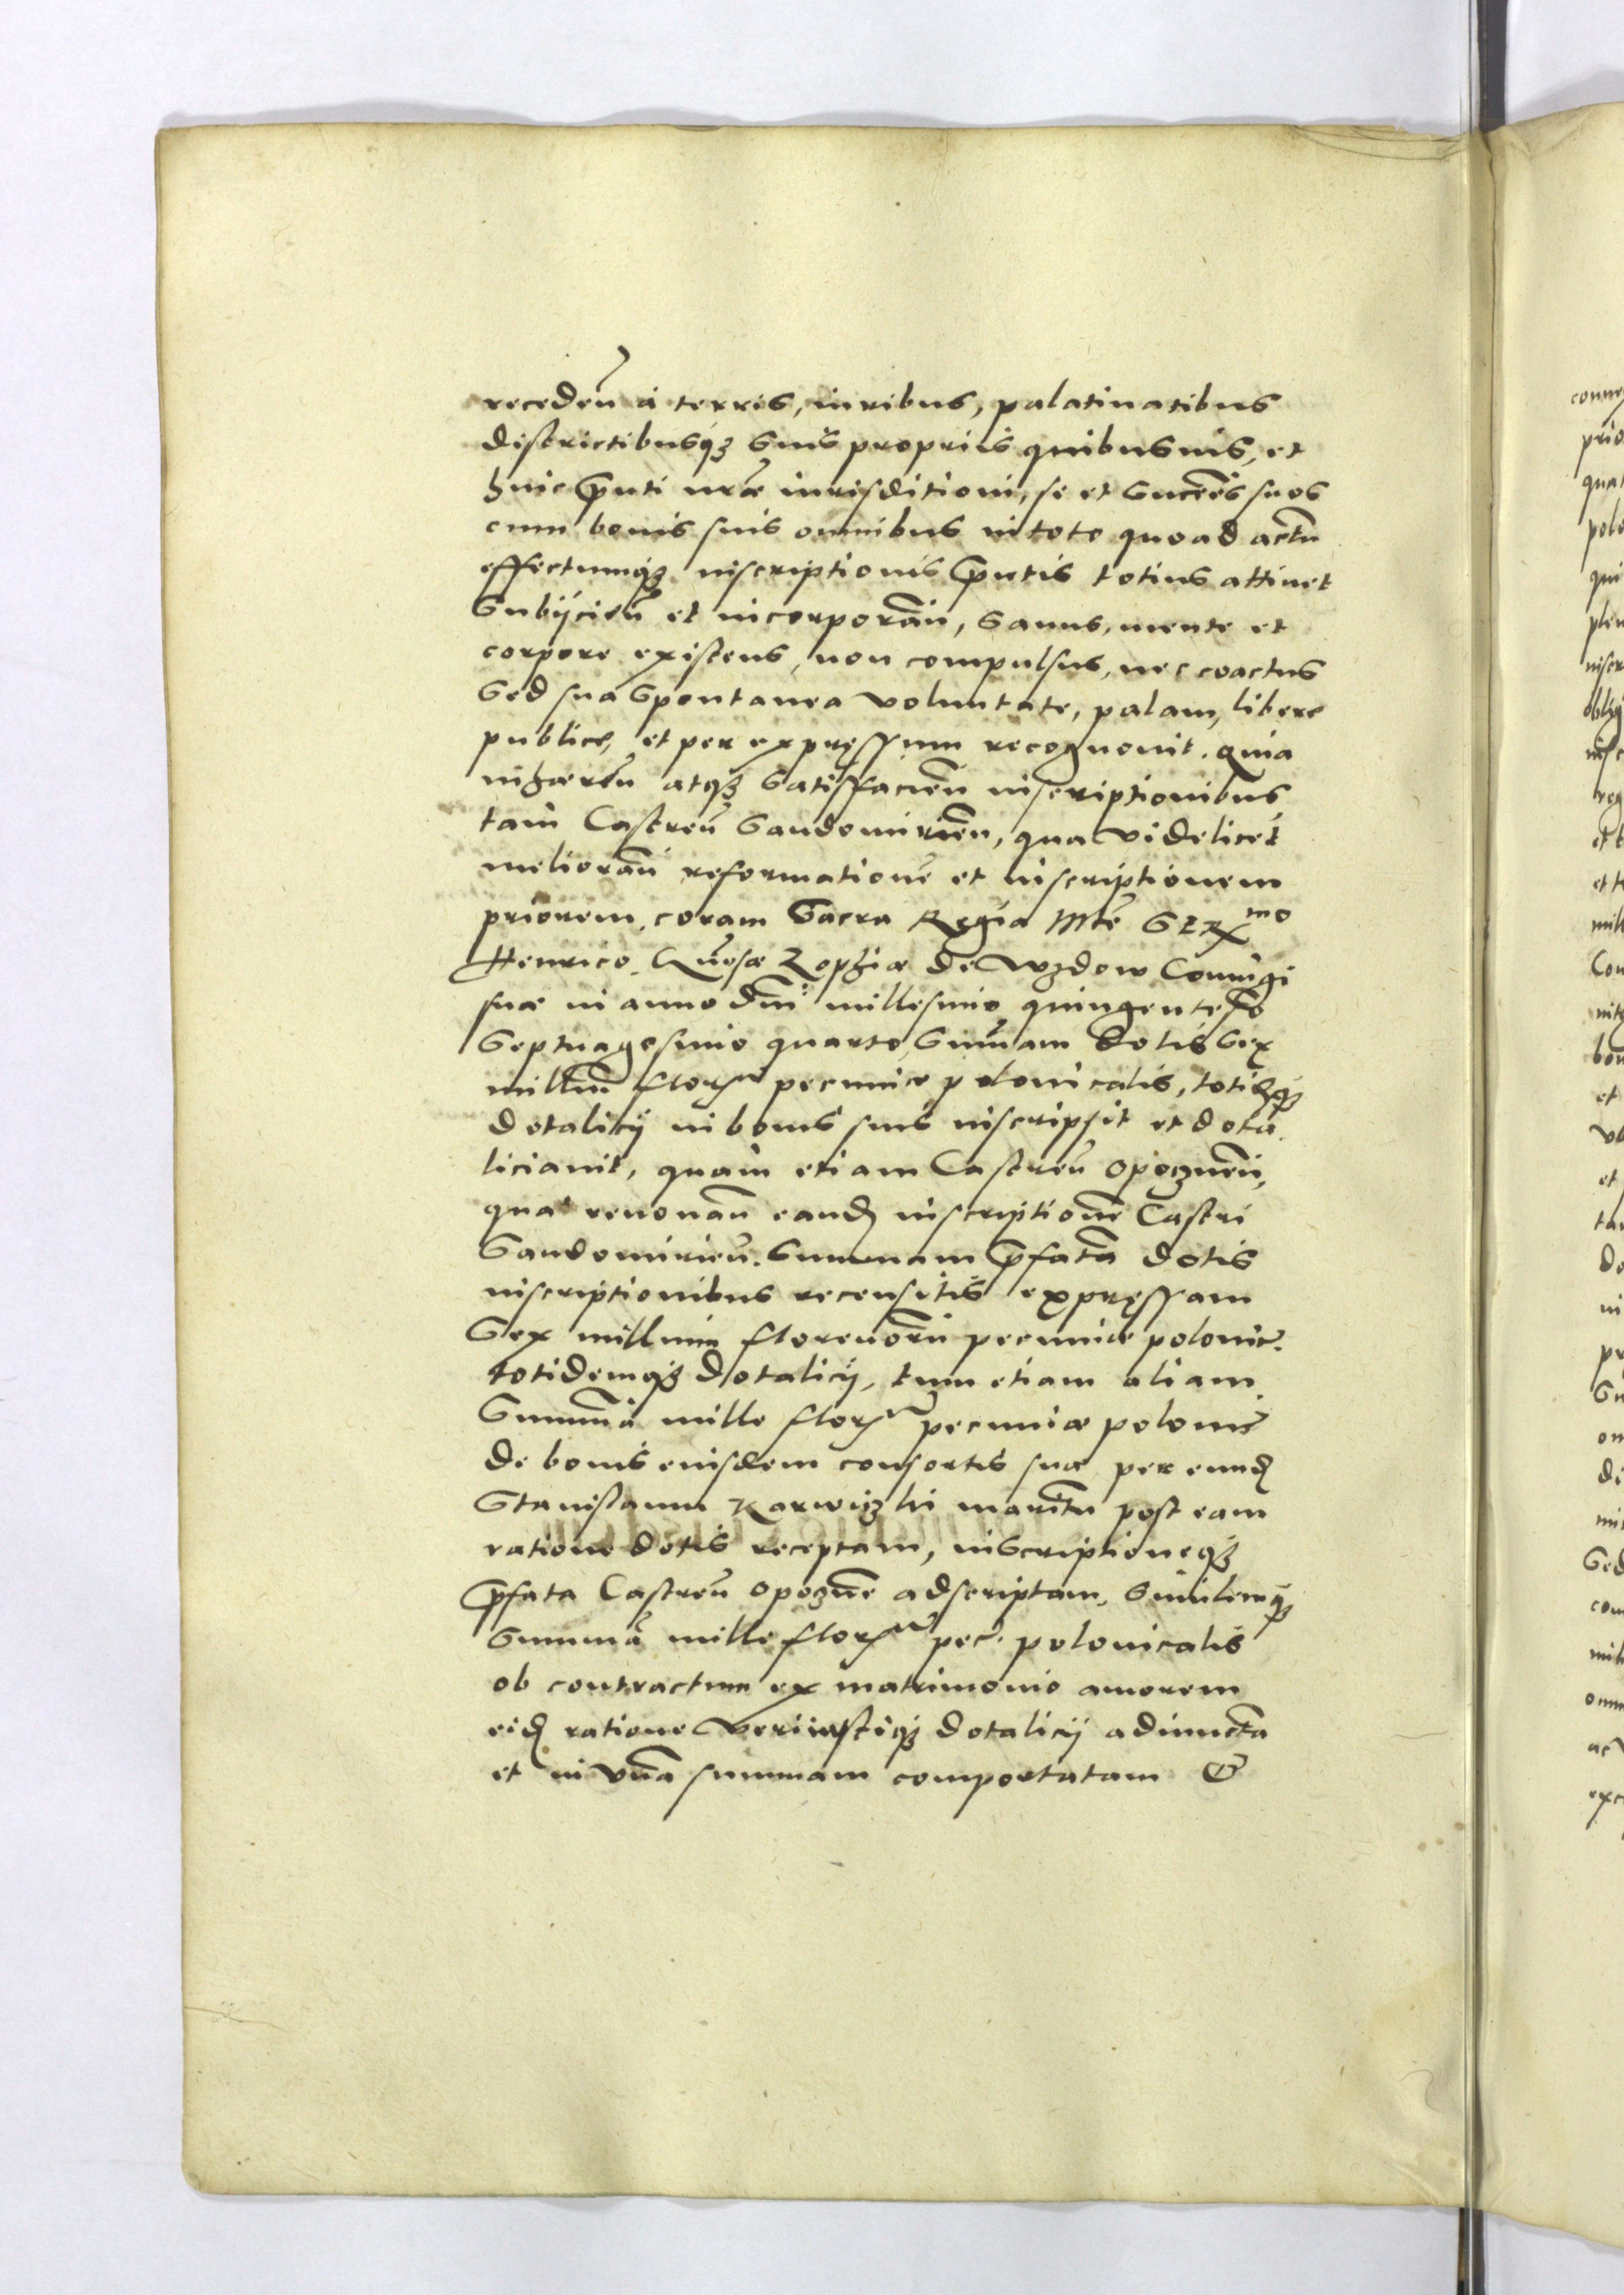 receden̄ a terris, iuribus, palatinatibus
districtibusq₃ suis propriis quibusuis, et
huic pn̄ti nr̄æ iurisditioni, se et succēēs suos
cum bonis suis omnibus in toto quoad actū
effectumq₃ inscriptionis pn̄tis totius attinet
subijcien̄ et incorporān, sanus, mente et
corpore existens, non compulsus, nec coactus
sed sua spontanea voluntate, palam, libere
publice, et per expręssum recognouit. quia
inhæren̄ atq₃ satisfacien̄ inscriptionibus
tam Castren̄ Sandomirien̄, qua videlicet
meliorān reformationē et inscriptionem
priorem, coram Sacra Regia Mt̄e Ser^mo
Henrico, Gn̄osæ Zophiæ de Wzdow Coniugi
suæ in anno dn̄i millesimo quingentesīo
Septuagesimo quarto, Sum̄am dotis sex
milliū flor^n pecuniæ polonicalis, totidq₃
dotalicij in bonis suis inscripsit et dota
liciauit, quam etiam Castren̄ Opocznen̄,
qua renouān eand inscriptionē Castri
Sandomirien̄. Summam pfatā dotis
inscriptionibus recensitis expręssam
Sex millium florenorū pecuniæ polonic̄.
totidemq₃ dotalicij, tum etiam aliam
Summā mille flor^n pecuniæ polonic̄
de bonis eiusdem consortis suæ per eund
Stanislaum Karwiczki maritū post eam
ratione dotis receptam, inscriptioneq₃
pfata Castren̄ Opocznē adscriptam, Similemq₃
Summā mille flor^n pec̄. polonicalis
ob contractum ex matrimonio amorem
eid ratione veri iustiq₃ dotalicij adiunctā
et in vnā summam comportatam &